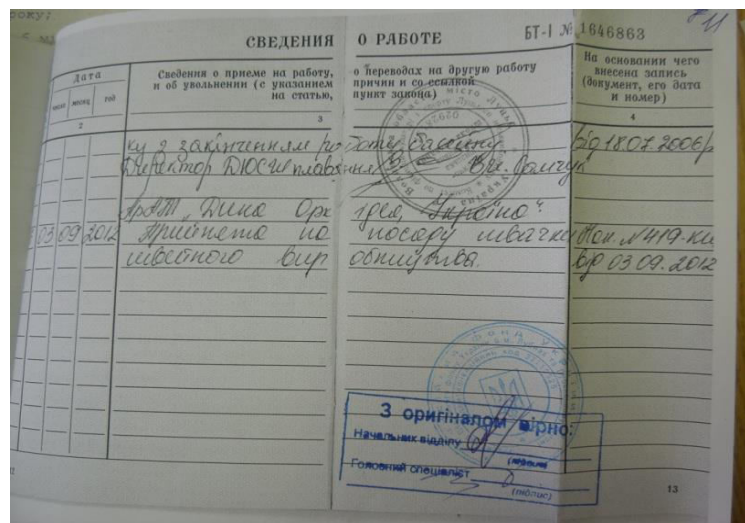 СВЕДЕНИЯ О РАБОТЕ БТ-I № 1646863
Дата
число месяц год
Сведения о приеме на работу, о переводах на другую работу
и об увольнении (с указанием причин и со ссылкой
на статью, пункт закона)
На основании чего
внесена запись
(документ, его дата
и номер)
2 3 4
ку з закінченням роботи басейну від 18.07.2006р
Директор ДЮСШ плавання
ПрАТ "Дика Орхідея, Україна"
03 09 2012 Прийнята на посаду швачки Нак. №419-к
швейного виробництва. від 03.09.2012
З оригіналом вірно:
Начальник відділу
Головний спеціаліст
(підпис)
13